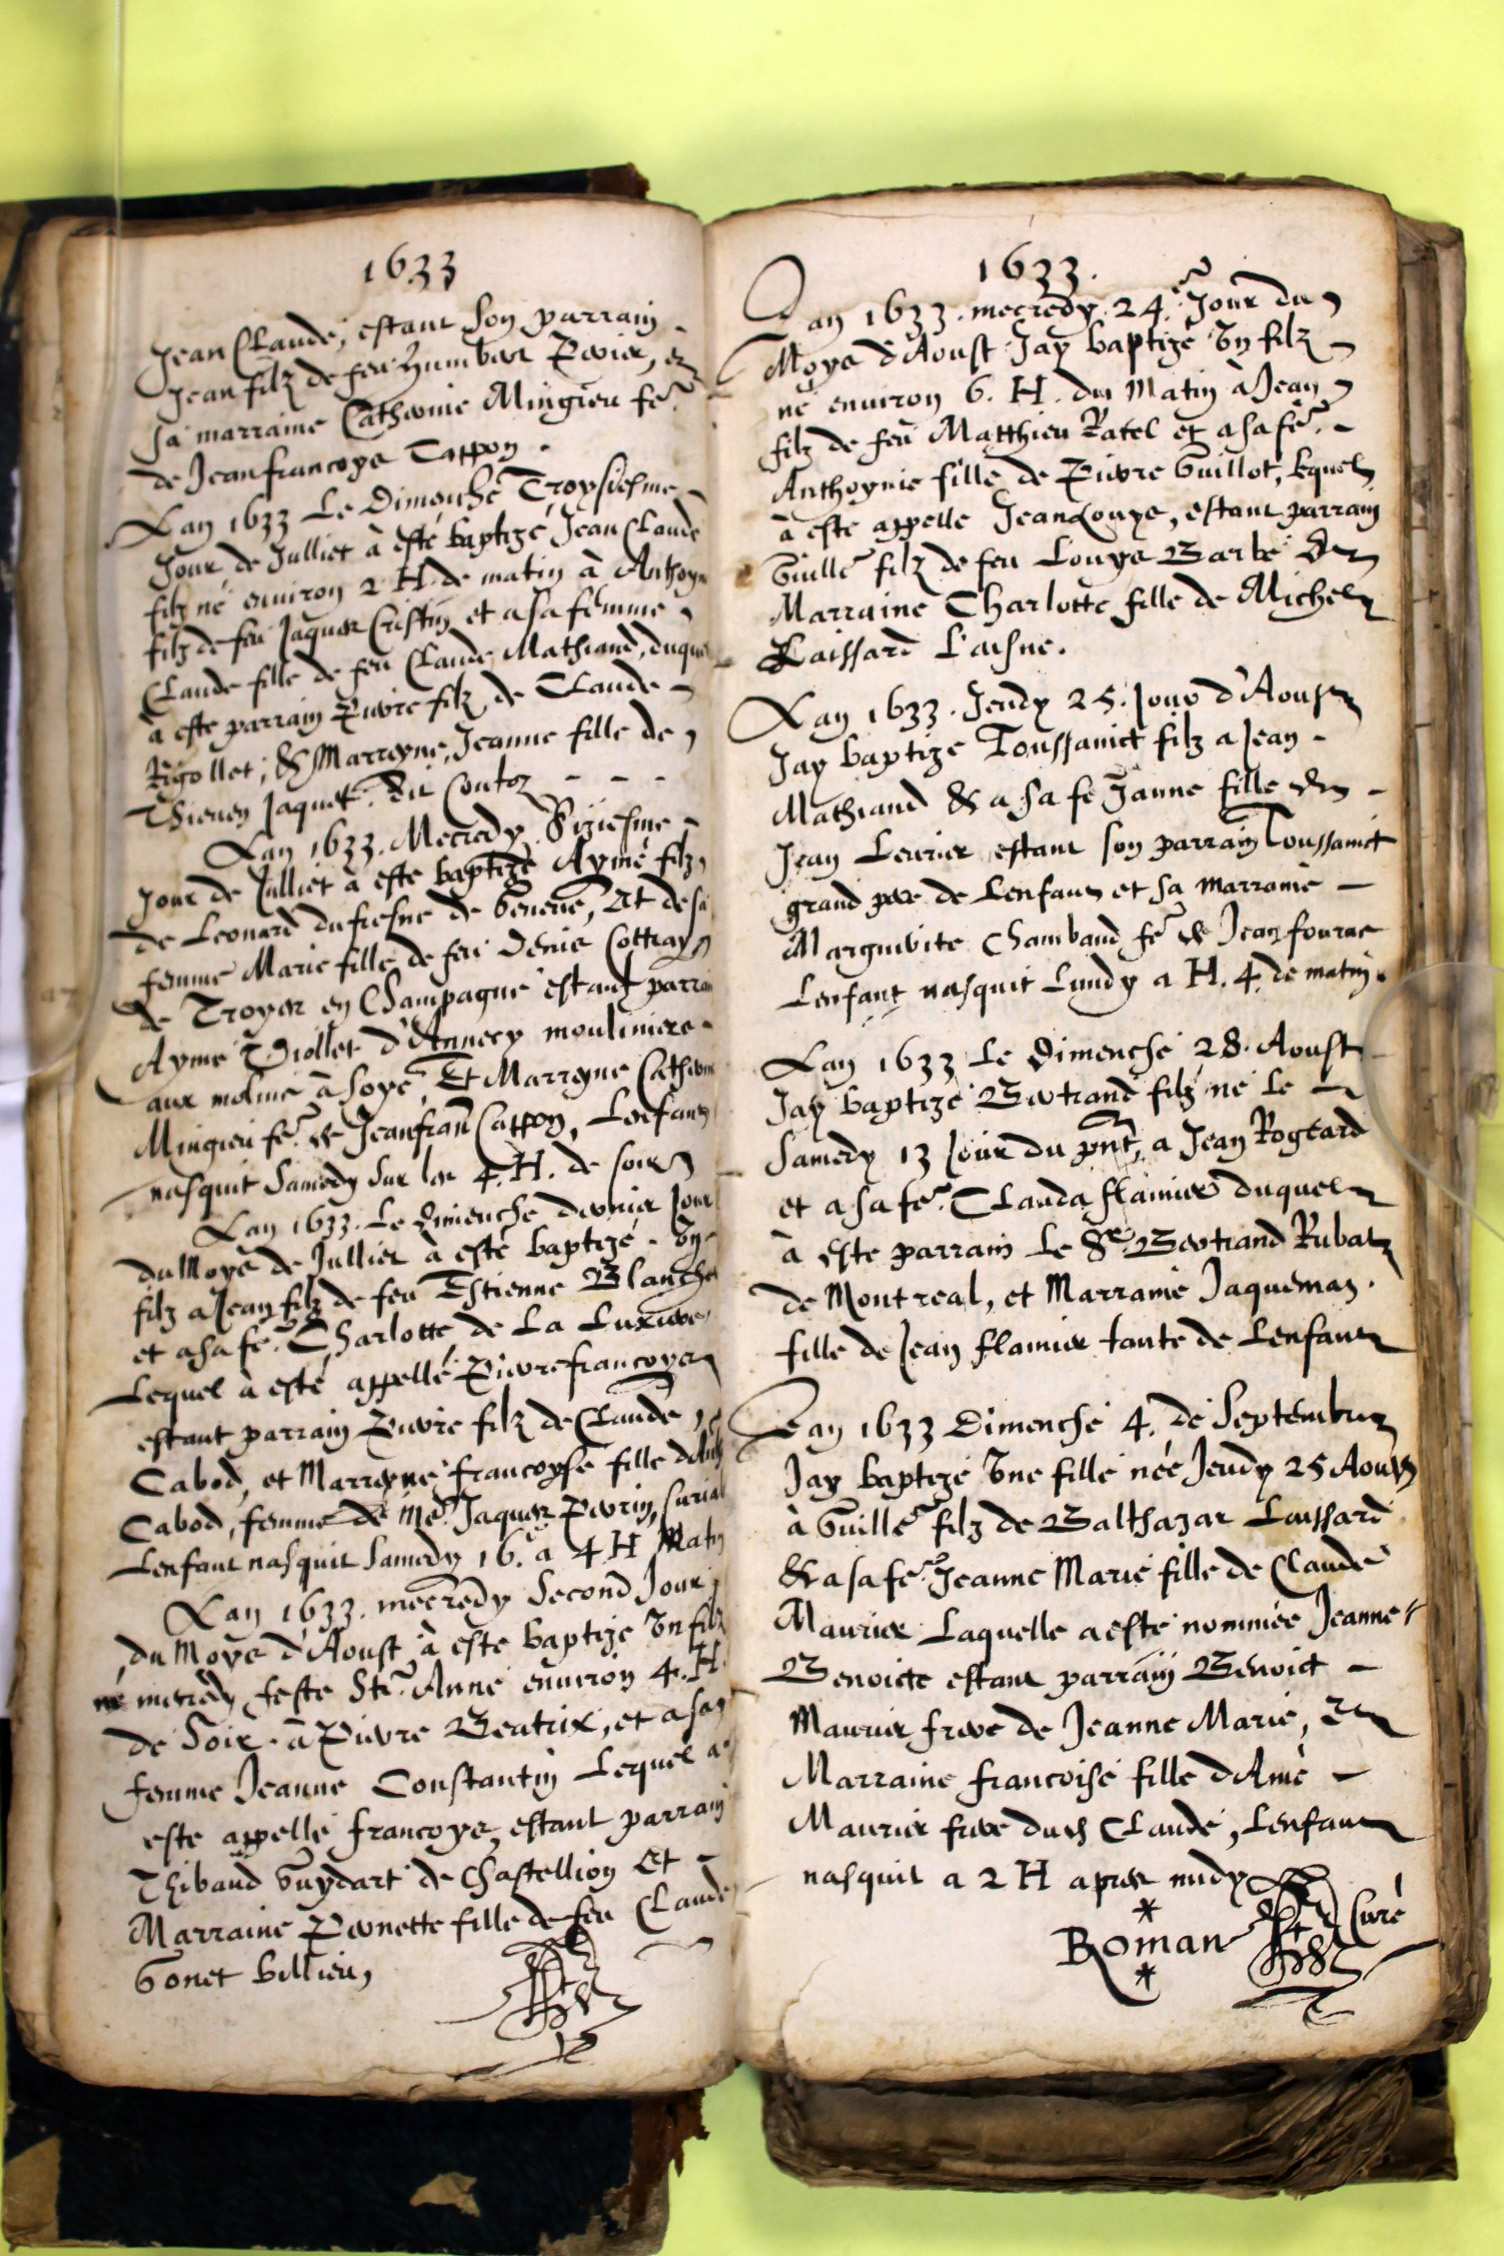 1633
Jean Claude, estant son parrain
Jean filz de feu Humbert Perier, et
sa marraine Catherine Mingieu fe.
de Jeanfrancoys Cappon.
Lan 1633 Le Dimenche Troysiesme
Jour de Julliet à esté baptizé Jean Claude
filz né environ 2 H. de matin à Anthoyne
filz de feu Jaques Cristin et a sa femme
Claude fille de feu Claude Mathiand, duquel
à este parrain Pierre filz de Claude
Rigollet, & Marreyne, Jeanne fille de
Thieven Jaquet. du Contoz - - -
Lan 1633. Mecredy Siziesme
Jour de Julliet à este baptizé Aymé filz
de Leonard dufresne de Geneve, Et de sa
femme Marie fille de feu Denis Cottray
de Troyes en Champagne estant parrain
Ayme Viollet d'Annecy mouliniere
aux moline à soye, Et Marreyne Catherine
Mingieu fe. de Jeanfran Cappon, Lenfant
nasquit Samedy sur les 4. H. de soir
Lan 1633. Le Dimenche dernier Jour
du Moys de Julliet à esté baptizé . Vn
filz a Jean filz de feu Estienne Blanchet
et a sa fe. Charlotte de La
Lequel à esté appellé Pierrefrancoys
estant parrain Pierre filz de Claude
Cabod, et Marreyne francoyse fille dudit
Cabod, femme de Me. Jaques Perrin,
Lenfant nasquit Samedy 16. a 4 H Matin
Lan 1633. mecredy Second Jour
du Moys d'Aoust à este baptizé Vn filz
né mecredy feste Ste. Anne environ 4. H.
de Soir. à Pierre Beatrix, et a sa
femme Jeanne Constantin Lequel a
este appellé francoys, estant parrain
Thibaud Guydart de Chastellion Et
Marraine Pernette fille de feu Claude
Gonet Billieu,
1633.
Lan 1633. mecredy. 24. Jour du
Moys d'Aoust Jay baptizé Vn filz
né environ 6. H. du Matin à Jean
filz de feu Matthieu Ratel et a sa fe.
Anthoynie fille de Pierre Guillot, lequel
à este appelle JeanLouys, estant parrain
Guille filz de feu Louys Barbe Et
Marraine Charlotte fille de Michel
Laissard L'aisne.
Lan 1633. Jeudy 25. Jour d'Aoust
Jay baptize Toussainct filz a Jean
Mathiand & a sa fe Janne fille de
Jean Levrier, estant son parrain Toussainct
grand pere de Lenfant et sa Marraine
Marguerite Chamband fe de Jean fourne
Lenfant nasquit Lundy a H. 4. de matin.
Lan 1633 Le Dimenche 28. Aoust
Jay baptizé Bertrand filz né le
Samedy 13 Jour du pnt, a Jean Rogeard
et a sa fe. Clauda flamier duquel
à este parrain Le Sr. Bertrand Rubat
de Montreal, et Marraine Jaquemaz.
fille de Jean flamier tante de Lenfant
Lan 1633 Dimenche 4. de Septembre
Jay baptizé Vne fille née Jeudy 25 Aoust
à Guille filz de Balthazar Laissard
& a sa fe. Jeanne Marie fille de Claude
Maurier Laquelle a esté nommée Jeanne
Benoicte estant parrain Benoict
Maurier frere de Jeanne Marie, Et
Marraine francoise fille dAmé
Maurier frere dudit Claude, Lenfant
nasquit a 2 H apres midy
Roman Curé